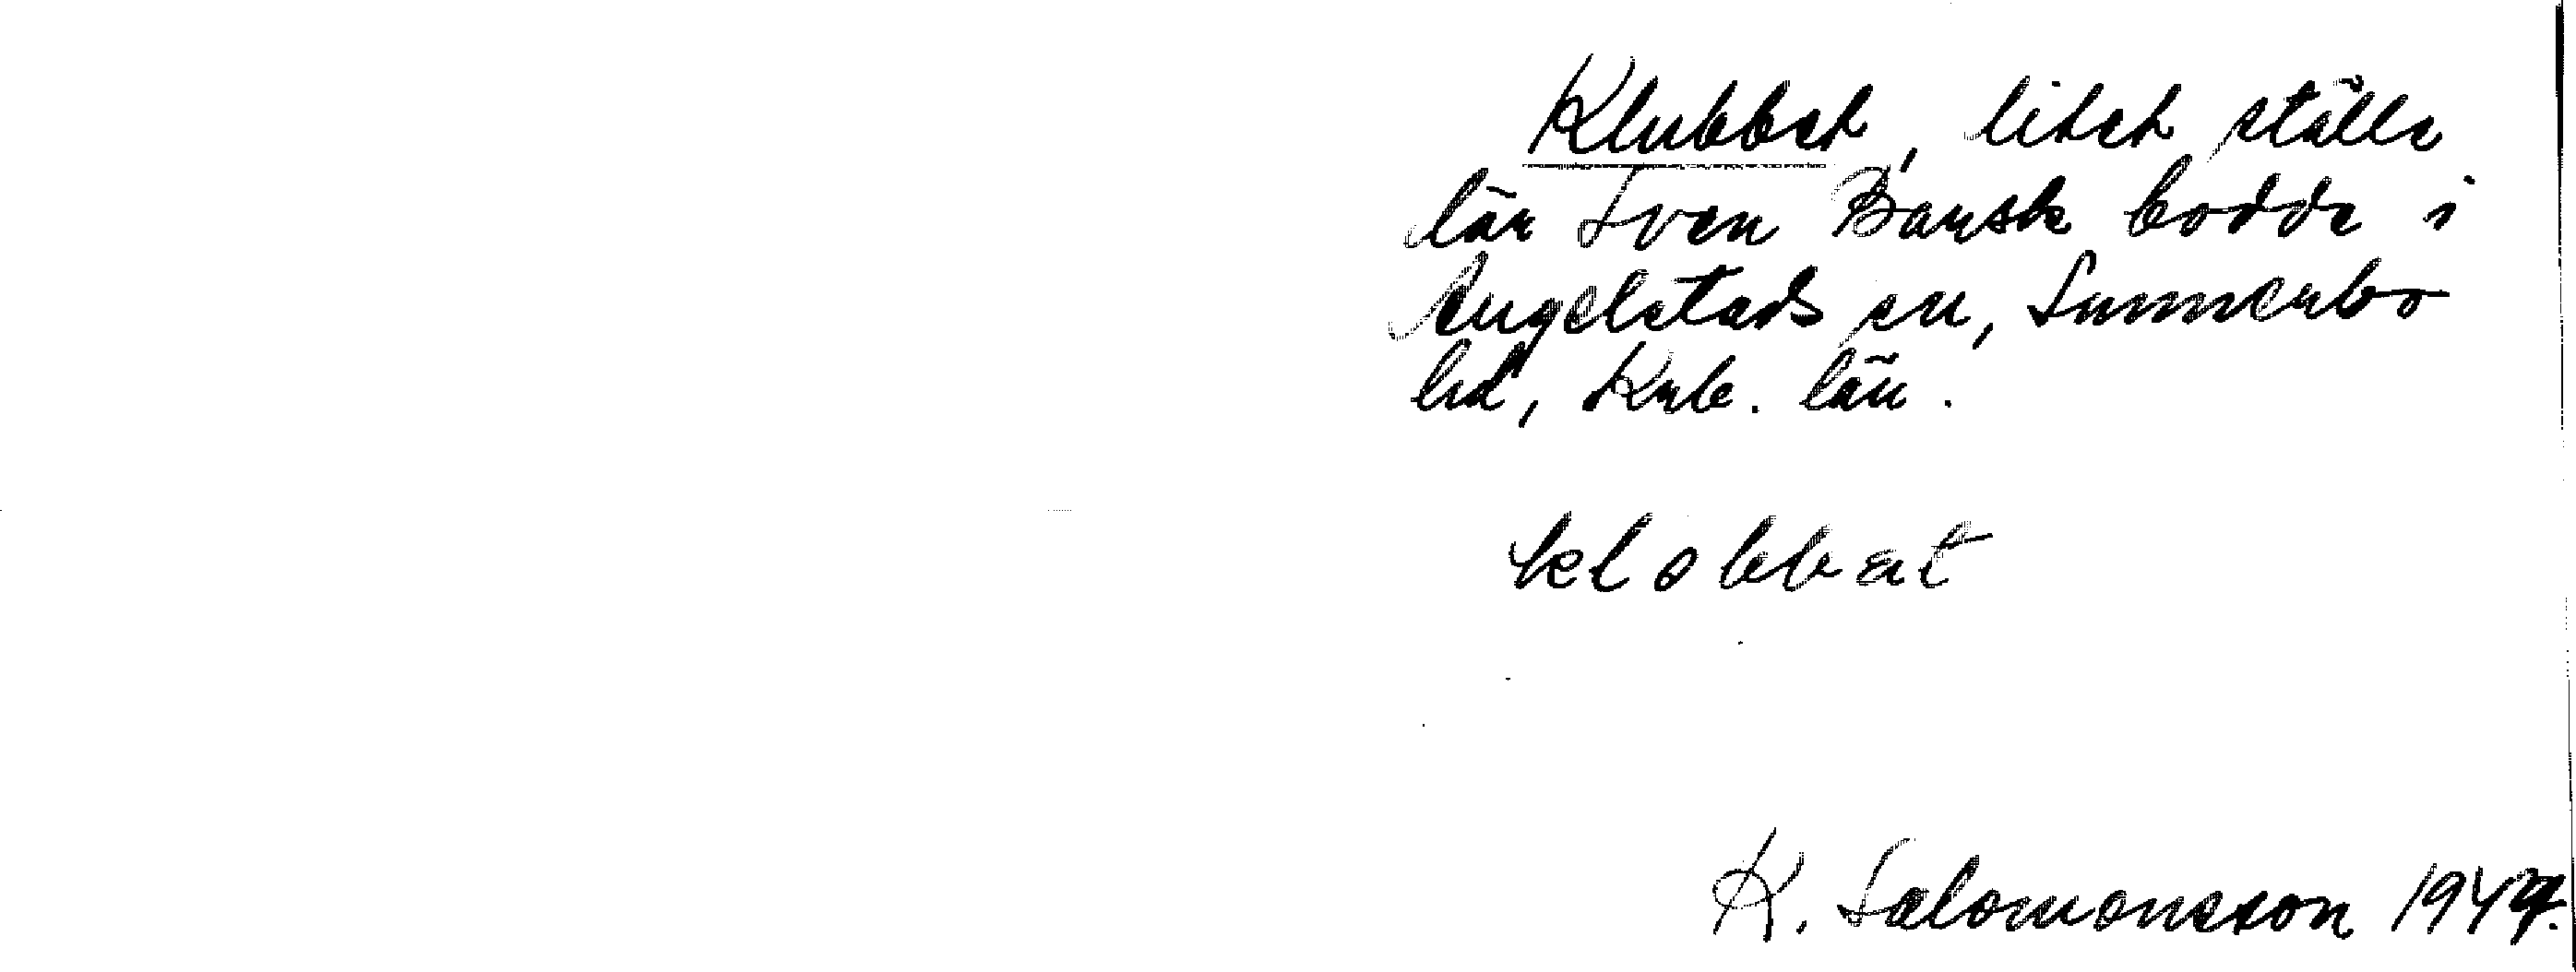 Klubbet, litet ställe
där Sven Barsk bodde i
Angelstads sn, Sunnerbo
hd, Krb. län.
klobbat
K. Salomonsson 1947.